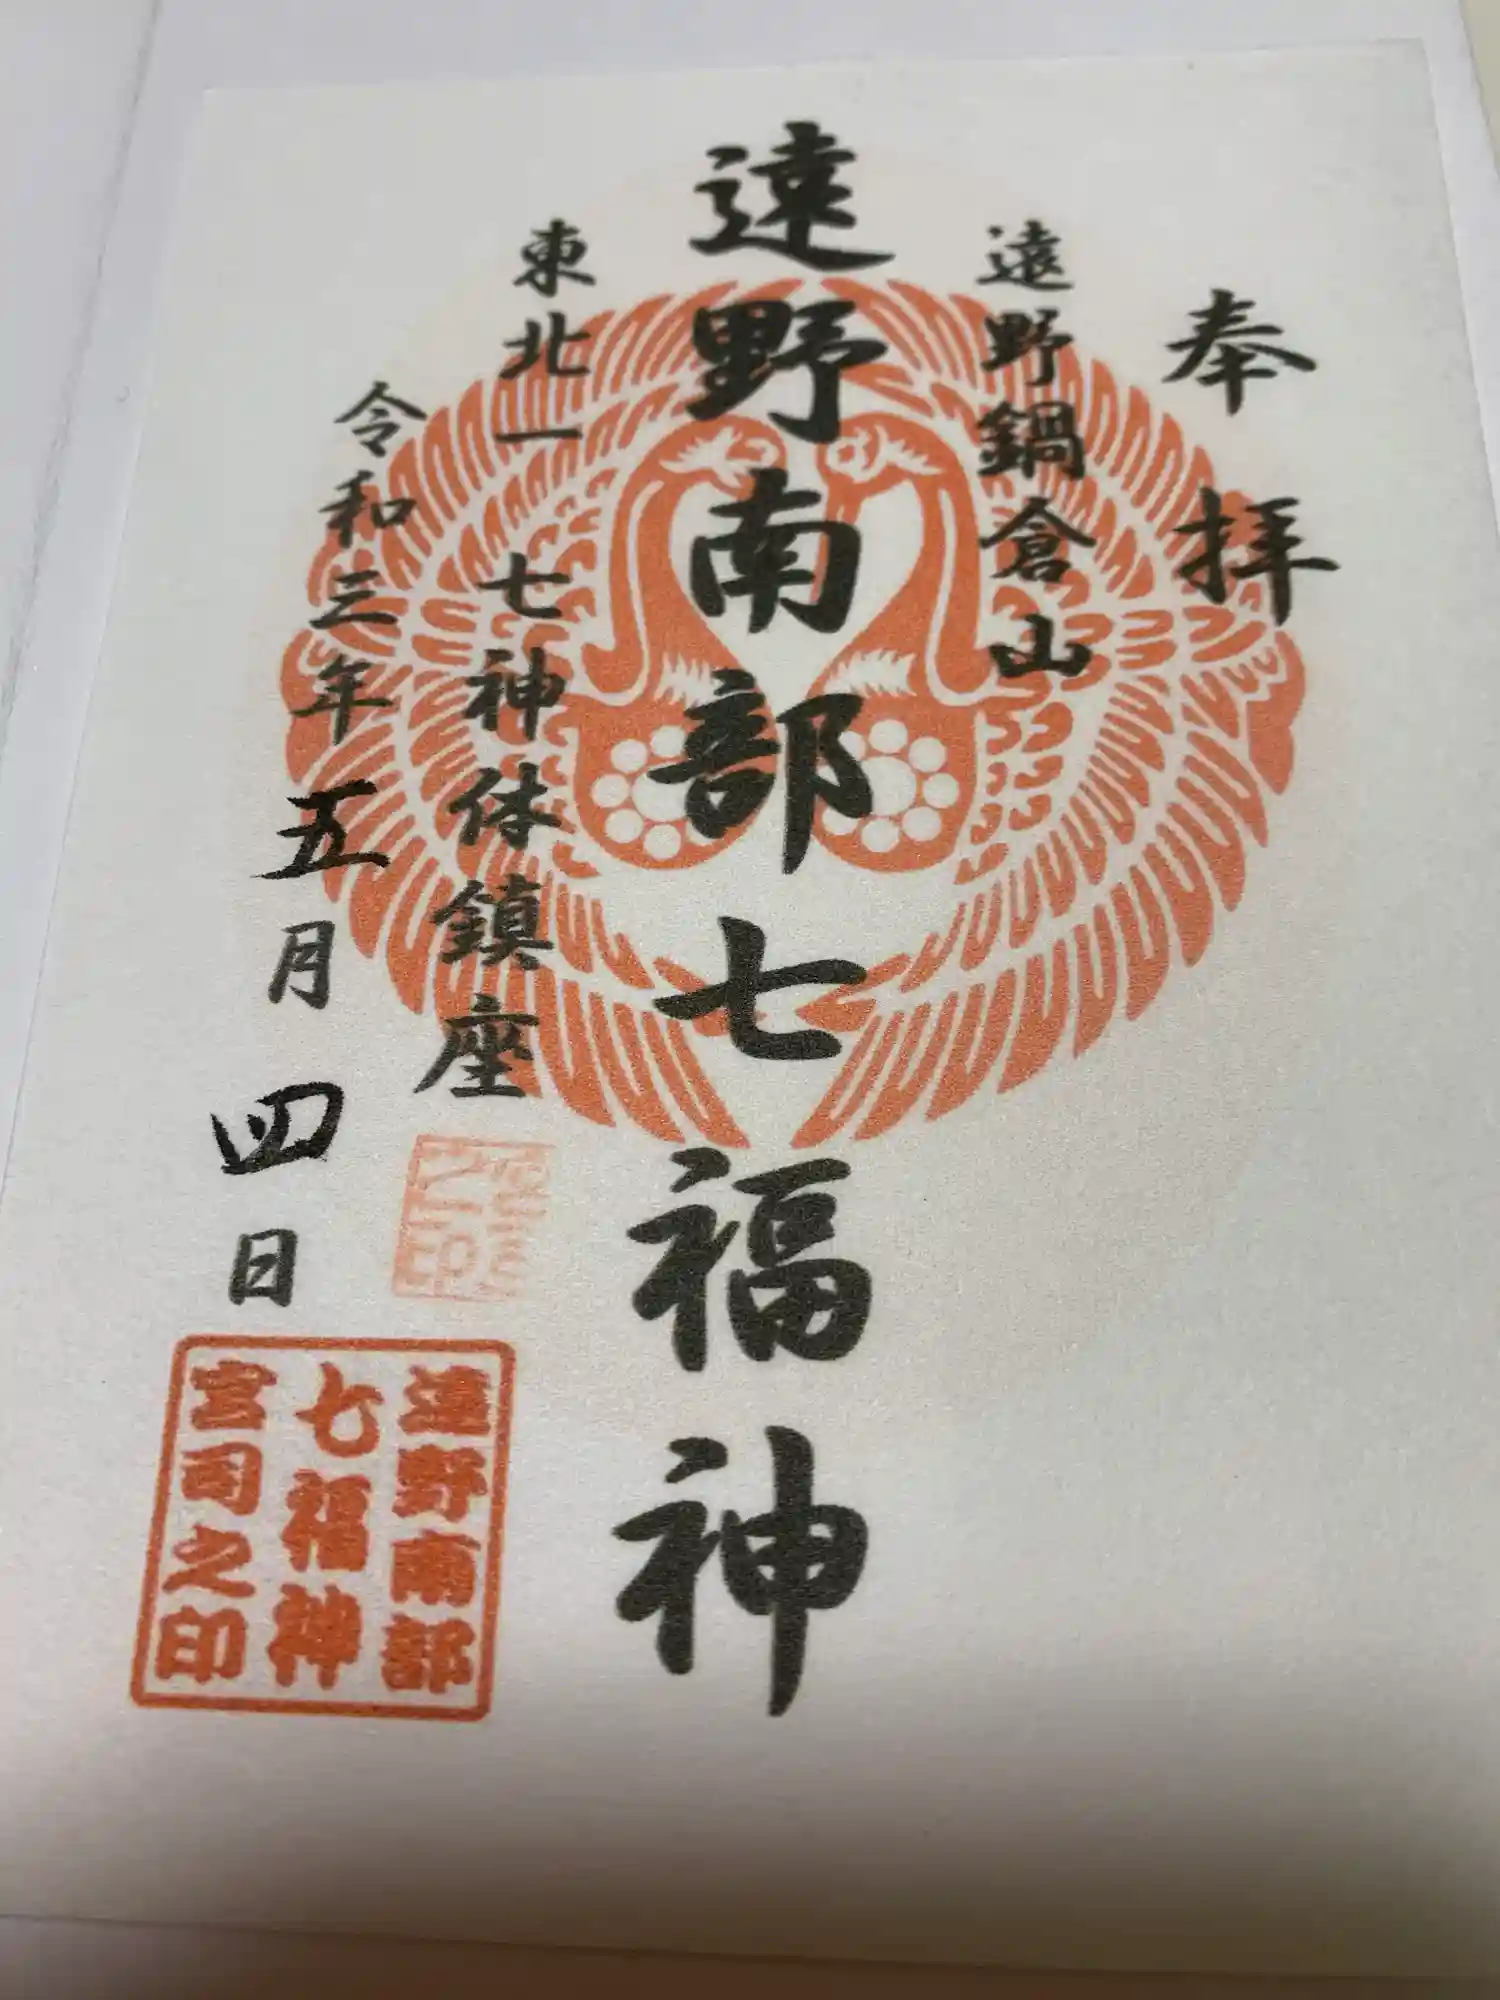 奉拝
遠野鍋倉山
遠野南部七福神
東北一 七神体鎮座
令和三年五月四日
遠野南部
七福神
宮司之印